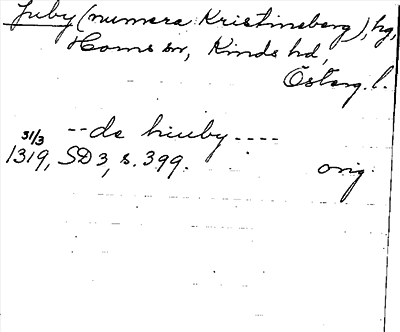 Juby (numera Kristineberg), hg,
Horns sn, Kinds hd,
Österg. l.
-- de hiuby ----
31/3
1319, SD 3, s. 399. orig